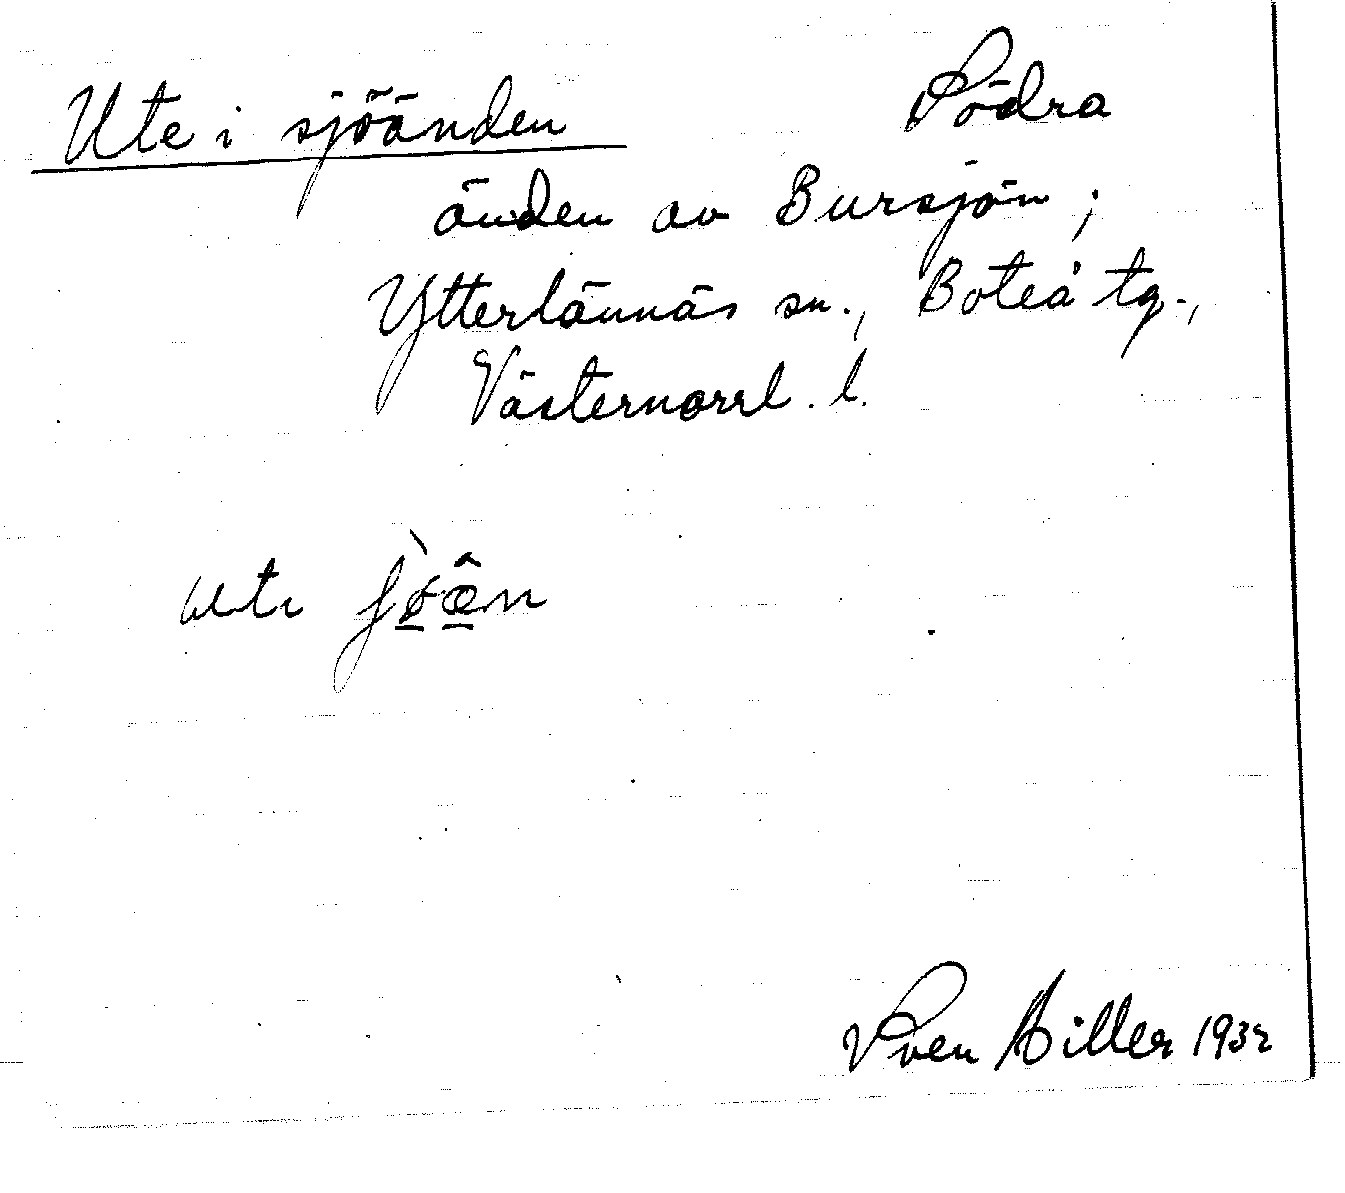 Ute i sjöänden Södra
änden av Bursjön;
Ytterlännäs sn., Boteå tg.,
Västernorrl. l.
ute
Sven Hiller 1932